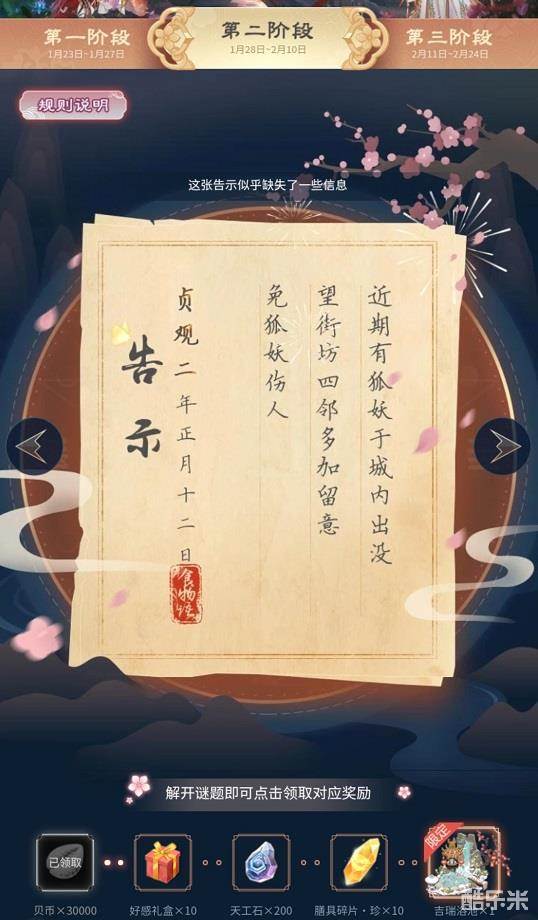 第一阶段
1月23日~1月27日
第二阶段
1月28日~2月10日
第三阶段
2月11日~2月24日
规则说明
这张告示似乎缺失了一些信息
近期有狐妖于城内出没
望街坊四邻多加留意
免狐妖伤人
贞观二年正月十二日
告示
解开谜题即可点击领取对应奖励
已领取
限定
贝币×30000
好感礼盒×10
天工石×200
膳具碎片·珍×10
吉瑞洛池
酷乐米